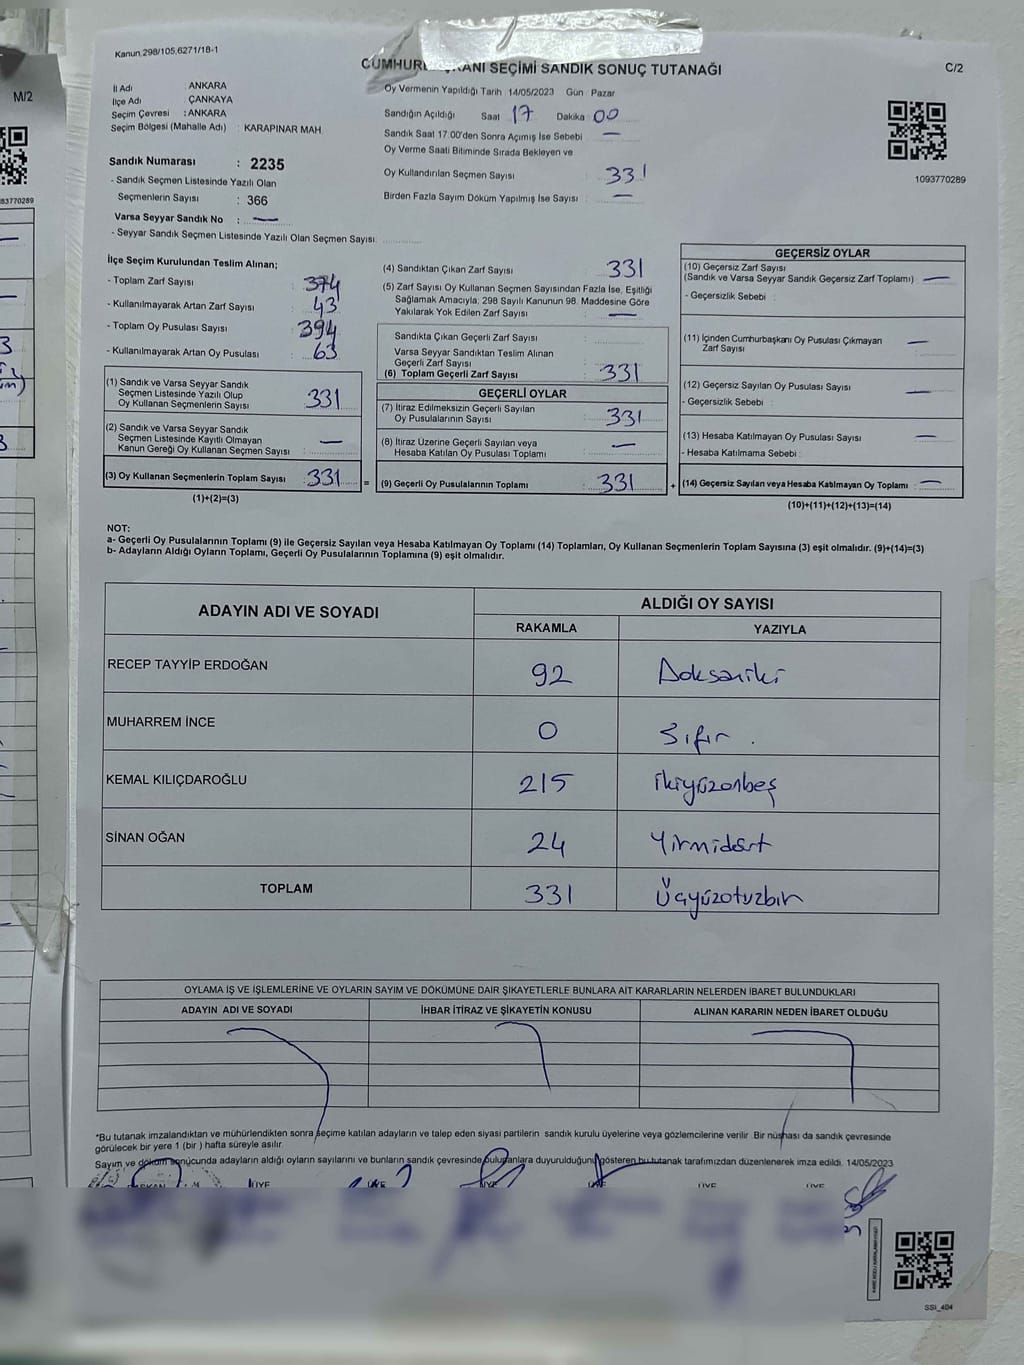 Kanun 298/105,6271/18-1
CUMHUR KANI SEÇİMİ SANDIK SONUÇ TUTANAĞI
C/2
M/2
İl Adı : ANKARA
İlçe Adı : ÇANKAYA
Seçim Çevresi : ANKARA
Seçim Bölgesi (Mahalle Adı) : KARAPINAR MAH.
Sandık Numarası : 2235
- Sandık Seçmen Listesinde Yazılı Olan
Seçmenlerin Sayısı : 366
Varsa Seyyar Sandık No : —
- Seyyar Sandık Seçmen Listesinde Yazılı Olan Seçmen Sayısı:
Oy Vermenin Yapıldığı Tarih 14/05/2023 Gün : Pazar
Sandığın Açıldığı Saat 17 Dakika 00
Sandık Saat 17.00'den Sonra Açımış İse Sebebi —
Oy Verme Saati Bitiminde Sırada Bekleyen ve
Oy Kullandırılan Seçmen Sayısı : 331
Birden Fazla Sayım Döküm Yapılmış İse Sayısı : —
1093770289
93770289
İlçe Seçim Kurulundan Teslim Alınan;
- Toplam Zarf Sayısı : 374
- Kullanılmayarak Artan Zarf Sayısı : 43
- Toplam Oy Pusulası Sayısı : 394
- Kullanılmayarak Artan Oy Pusulası : 63
(1) Sandık ve Varsa Seyyar Sandık
Seçmen Listesinde Yazılı Olup
Oy Kullanan Seçmenlerin Sayısı : 331
(2) Sandık ve Varsa Seyyar Sandık
Seçmen Listesinde Kayıtlı Olmayan
Kanun Gereği Oy Kullanan Seçmen Sayısı : —
(3) Oy Kullanan Seçmenlerin Toplam Sayısı : 331 =
(1)+(2)=(3)
(4) Sandıktan Çıkan Zarf Sayısı : 331
(5) Zarf Sayısı Oy Kullanan Seçmen Sayısından Fazla İse, Eşitliği
Sağlamak Amacıyla, 298 Sayılı Kanunun 98. Maddesine Göre
Yakılarak Yok Edilen Zarf Sayısı : —
Sandıkta Çıkan Geçerli Zarf Sayısı :
Varsa Seyyar Sandıktan Teslim Alınan
Geçerli Zarf Sayısı :
(6) Toplam Geçerli Zarf Sayısı : 331
GEÇERLİ OYLAR
(7) İtiraz Edilmeksizin Geçerli Sayılan
Oy Pusulalarının Sayısı : 331
(8) İtiraz Üzerine Geçerli Sayılan veya
Hesaba Katılan Oy Pusulası Toplamı : —
(9) Geçerli Oy Pusulalarının Toplamı : 331 +
GEÇERSİZ OYLAR
(10) Geçersiz Zarf Sayısı
(Sandık ve Varsa Seyyar Sandık Geçersiz Zarf Toplamı) : —
- Geçersizlik Sebebi :
(11) İçinden Cumhurbaşkanı Oy Pusulası Çıkmayan
Zarf Sayısı : —
(12) Geçersiz Sayılan Oy Pusulası Sayısı : —
- Geçersizlik Sebebi :
(13) Hesaba Katılmayan Oy Pusulası Sayısı : —
- Hesaba Katılmama Sebebi :
(14) Geçersiz Sayılan veya Hesaba Katılmayan Oy Toplamı : —
(10)+(11)+(12)+(13)=(14)
NOT:
a- Geçerli Oy Pusulalarının Toplamı (9) ile Geçersiz Sayılan veya Hesaba Katılmayan Oy Toplamı (14) Toplamları, Oy Kullanan Seçmenlerin Toplam Sayısına (3) eşit olmalıdır. (9)+(14)=(3)
b- Adayların Aldığı Oyların Toplamı, Geçerli Oy Pusulalarının Toplamına (9) eşit olmalıdır.
ADAYIN ADI VE SOYADI ALDIĞI OY SAYISI
RAKAMLA YAZIYLA
RECEP TAYYİP ERDOĞAN 92 Doksaniki
MUHARREM İNCE 0 Sıfır.
KEMAL KILIÇDAROĞLU 215 ikiyüzonbeş
SİNAN OĞAN 24 Yirmidört
TOPLAM 331 Üçyüzotuzbir
OYLAMA İŞ VE İŞLEMLERİNE VE OYLARIN SAYIM VE DÖKÜMÜNE DAİR ŞİKAYETLERLE BUNLARA AİT KARARLARIN NELERDEN İBARET BULUNDUKLARI
ADAYIN ADI VE SOYADI İHBAR İTİRAZ VE ŞİKAYETİN KONUSU ALINAN KARARIN NEDEN İBARET OLDUĞU
*Bu tutanak imzalandıktan ve mühürlendikten sonra seçime katılan adayların ve talep eden siyasi partilerin sandık kurulu üyelerine veya gözlemcilerine verilir. Bir nüshası da sandık çevresinde
görülecek bir yere 1 (bir ) hafta süreyle asılır.
Sayım ve döküm sonucunda adayların aldığı oyların sayılarını ve bunların sandık çevresinde bulunanlara duyurulduğunu gösteren bu tutanak tarafımızdan düzenlenerek imza edildi. 14/05/2023
ÜYE ÜYE ÜYE ÜYE ÜYE ÜYE
SSİ_404